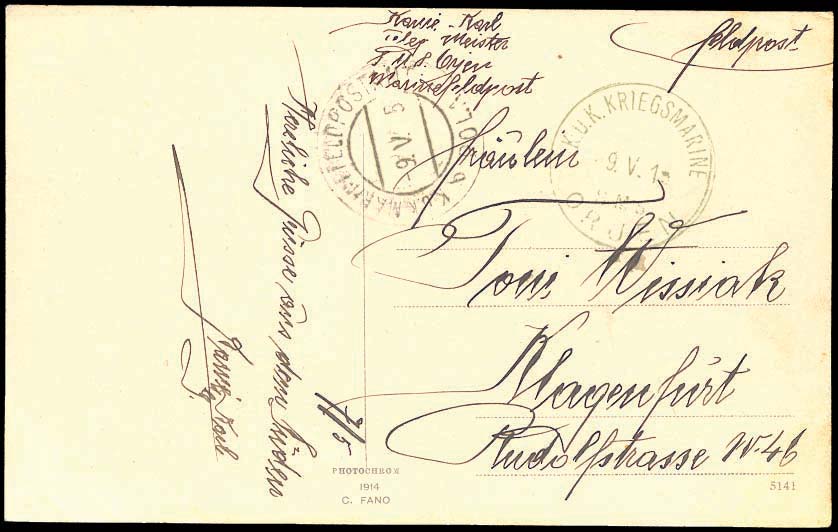 Karl
Teleg Meister
Marinefeldpost
Feldpost
K.U.K. MARINEFELDPOSTAMT POLA
9. V. 15
K.U.K. KRIEGSMARINE
9. V. 15
ORJEN
Fräulein
Toni Wissiak
Klagenfurt
Rudolfstrasse Nr 46
Herzliche Grüsse aus dem Süden
Karl
7/5
PHOTOCHROM
1914
C. FANO
5141